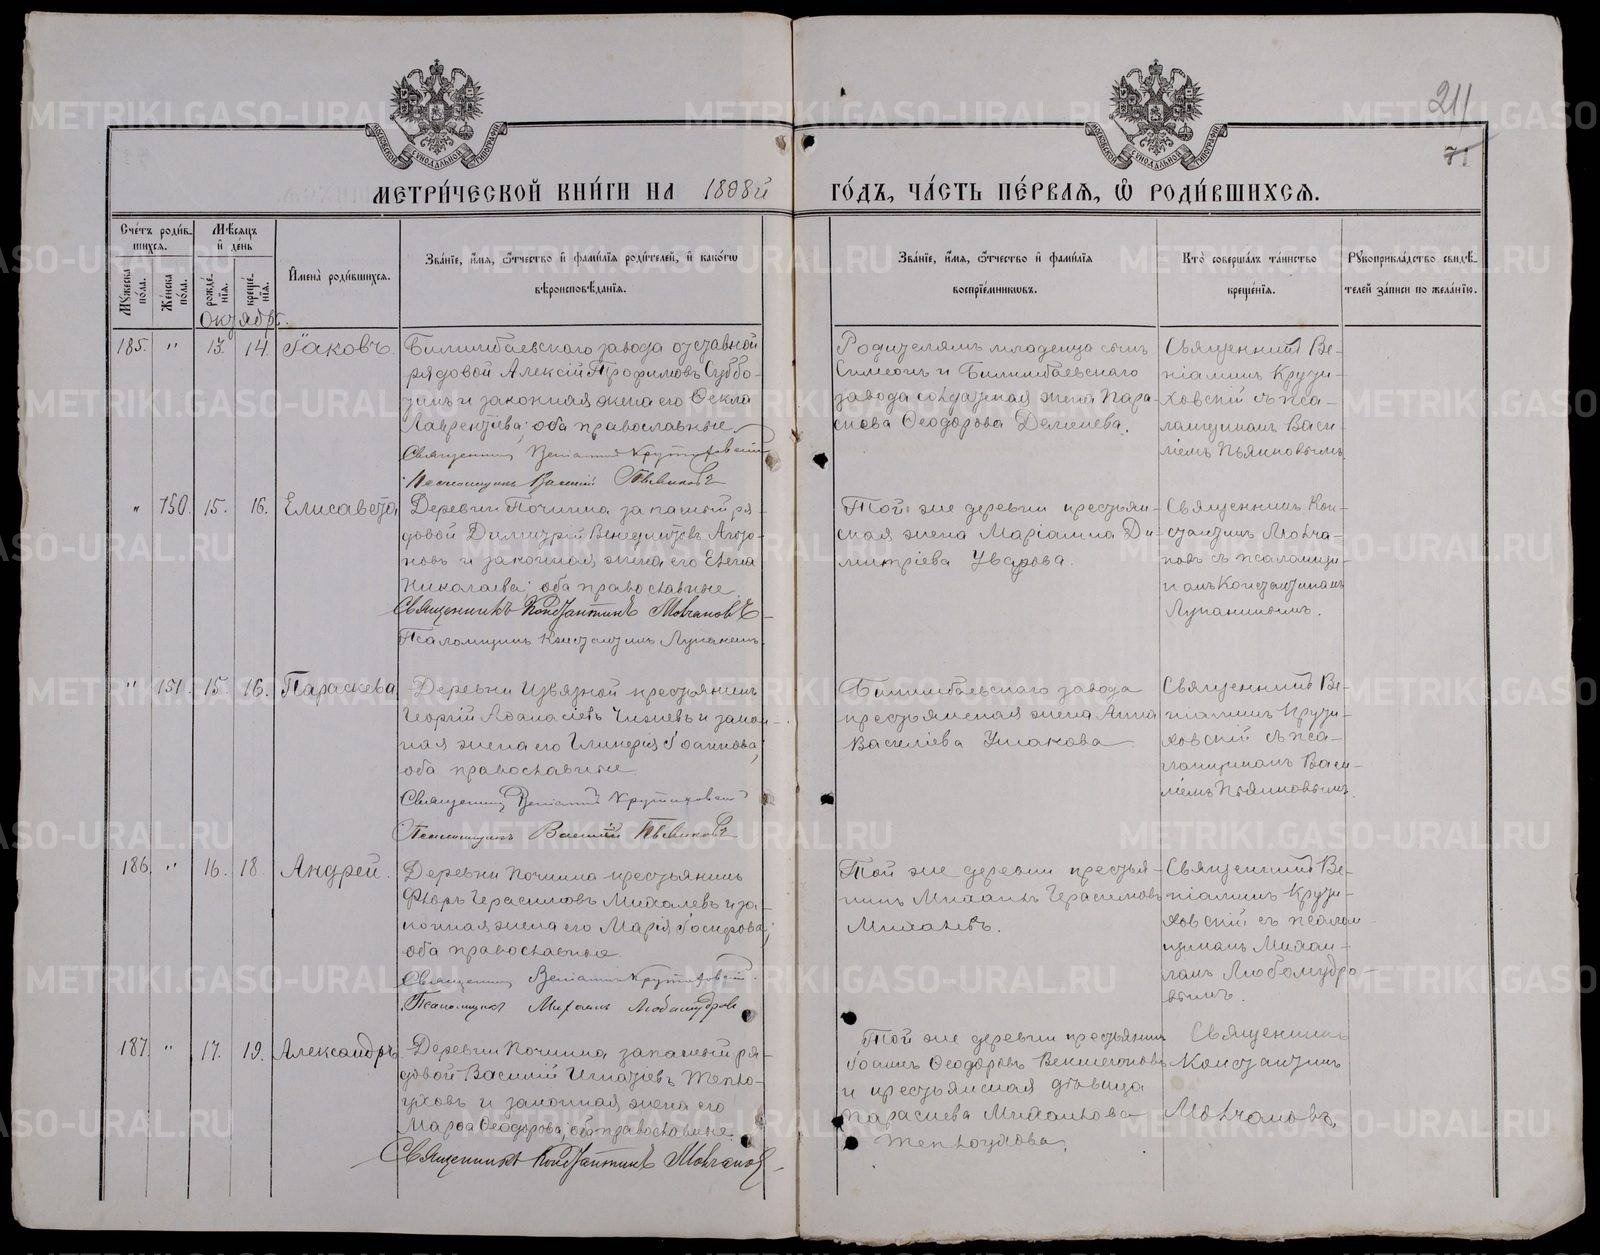 211
71
МЕТРИ́ЧЕСКОЙ КНИ́ГИ НА 1898й ГО́ДЪ, ЧА́СТЬ ПЕ́РВАѦ, Ѡ РОДИ́ВШИХСѦ.
Сче́тъ роди́в-
шихся.
Мѣ́сяцъ
и́ де́нь
Мꙋ́жеска
по́ла.
Же́нска
по́ла.
рожде́-
нїѧ.
креще́-
нїѧ.
И́мена̀ роди́вшихся.
Зва́нїе, и́мѧ, ѻ́тчество и́ фами́лїѧ роди́телей, и́ како́гѡ
вѣроисповѣ́данїѧ.
Зва́нїе, и́мѧ, ѻ́тчество и́ фами́лїѧ
воспрїе́мникѡвъ.
Кто̀ соверша́лъ та́инство
креще́нїѧ.
Рꙋкоприкла́дство свидѣ́-
телей за́писи по жела́нїю.
Октябрь.
185. " 13. 14. Іаковъ.
Билимбаевскаго завода отставной
рядовой Алексій Трофимовъ Суббо-
тинъ и законная жена его Ѳекла
Лаврентіева; оба православные.
Священникъ Веніаминъ Крутиховскій
Псаломщикъ Василій Пьянковъ
Родителямъ младенца сынъ
Симеонъ и Билимбаевскаго
завода солдатская жена Пара-
скева Ѳеодорова Деменева.
Священникъ Ве-
ніаминъ Крути-
ховскій съ пса-
ломщикомъ Васи-
ліемъ Пьянковымъ
" 150. 15. 16. Елисавета
Деревни Починка запасный ря-
довой Димитрій Венедиктовъ
и законная жена его Елена
Николаева; оба православные.
Священникъ Константинъ Молчановъ
Псаломщикъ Константинъ
Той же деревни крестьян-
ская жена Маріанна Ди-
митріева Уварова.
Священникъ Кон-
стантинъ Молча-
новъ съ псаломщи-
комъ Константиномъ
" 151. 15. 16. Параскева
Деревни Извязной крестьянинъ
Георгій Аѳанасіевъ Чижевъ и закон-
ная жена его Гликерія Іоаннова;
оба православные.
Священникъ Веніаминъ Крутиховскій
Псаломщикъ Василій Пьянковъ
Билимбаевскаго завода
крестьянская жена Анна
Василіева Ушакова
Священникъ Ве-
ніаминъ Крути-
ховскій съ пса-
ломщикомъ Васи-
ліемъ Пьянковымъ.
186. " 16. 18. Андрей.
Деревни Починка крестьянинъ
Флоръ Герасимовъ Михалевъ и за-
конная жена его Марія Іосифова;
оба православные.
Священникъ Веніаминъ Крутиховскій.
Псаломщикъ Михаилъ Любомудровъ
Той же деревни крестья-
нинъ Михаилъ Герасимовъ
Михалевъ.
Священникъ Ве-
ніаминъ Крути-
ховскій съ псалом-
щикомъ Михаи-
ломъ Любомудро-
вымъ.
187. " 17. 19. Александръ
Деревни Починка запасный ря-
довой Василій Игнатіевъ Жело-
уховъ и законная жена его
Марѳа Ѳеодорова; оба православные.
Священникъ Константинъ Молчановъ
Той же деревни крестьянинъ
Іоаннъ Ѳеодоровъ
и крестьянская дѣвица
Параскева Михаилова
Священникъ
Константинъ
Молчановъ.